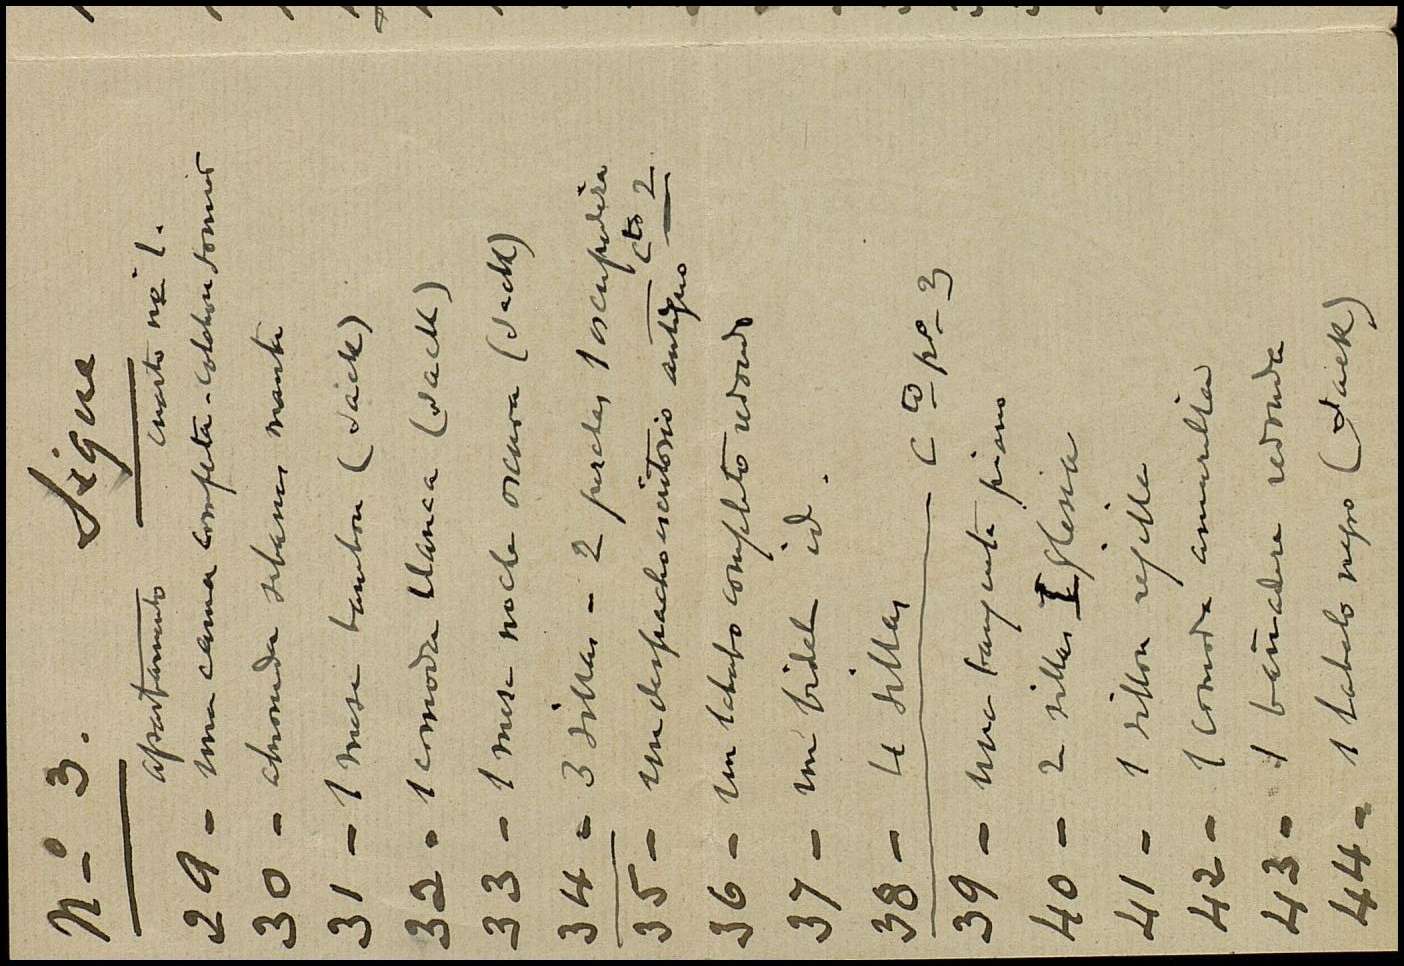 N-º 3. Sigue
apartamento cuarto nº 1.
29 - una cama completa - colchon somier
30 - almohada sabanas manta
31 - 1 mesa bambou (Jack)
32 - 1 comoda blanca (Jack)
33 - 1 mesa noche oscura (Jack)
34 - 3 sillas - 2 perchas 1 escupidera
35 - un despacho escritorio antiguo Cto 2
36 - un lababo completo redondo
37 - un bidet id.
38 - 4 sillas
Cto nº 3
39 - una banqueta piano
40 - 2 sillas Iglesia
41 - 1 sillon rejilla
42 - 1 comoda amarilla
43 - 1 bañadera redonda
44 - 1 lababo negro (Jack)